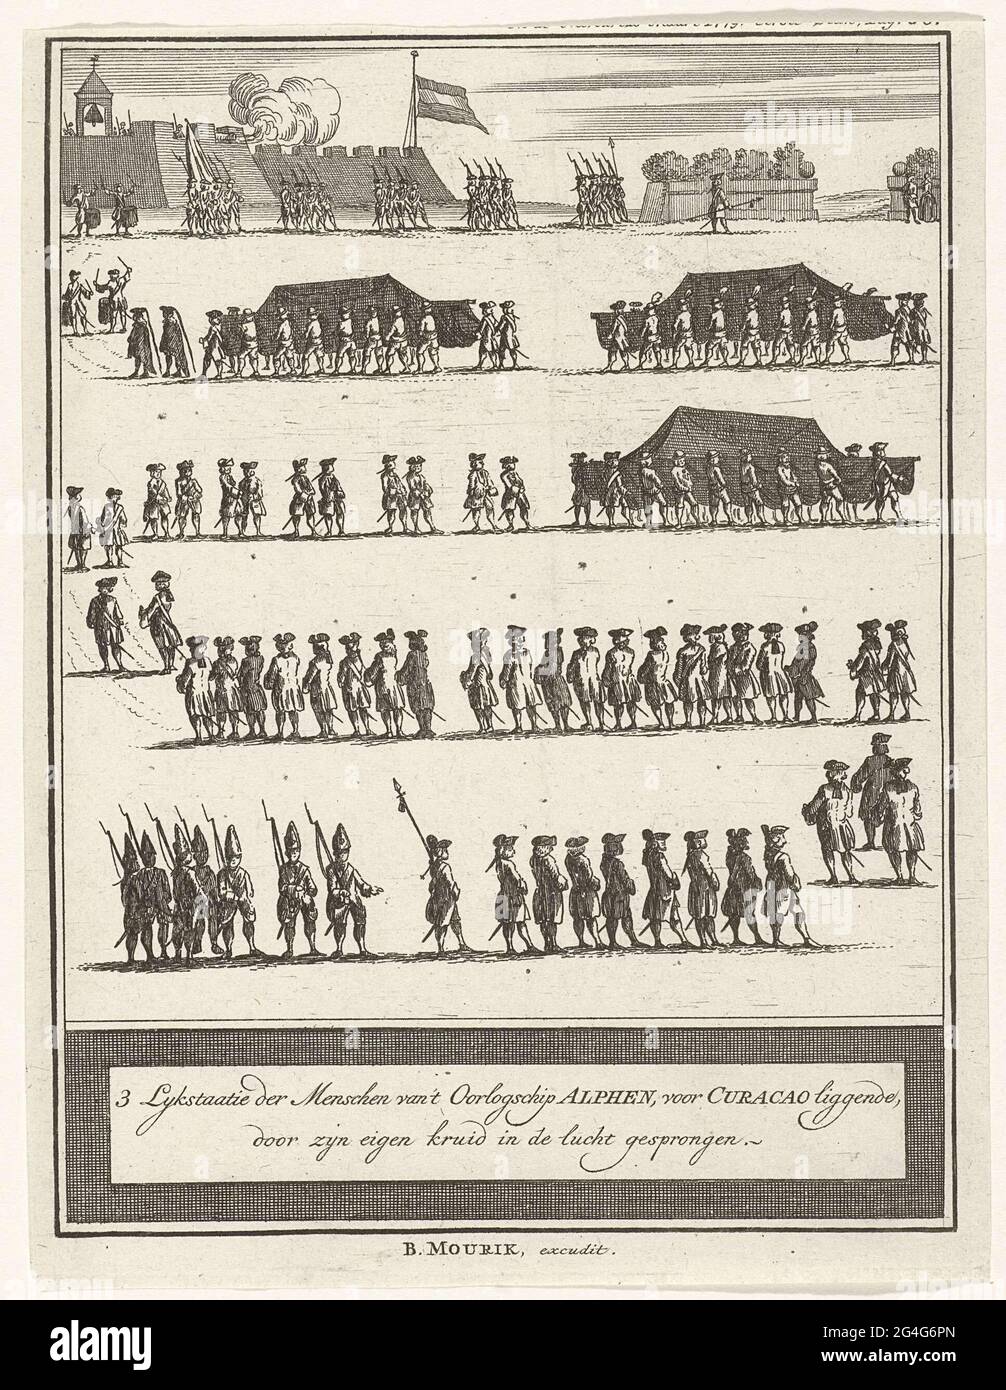 3 Lykstaatie der Menschen van't Oorlogschip ALPHEN, voor CURACAO liggende,
door zijn eigen kruid in de lucht gesprongen.~
B. MOURIK, excudit.
alamy
Image ID: 2G4G6PN
www.alamy.com